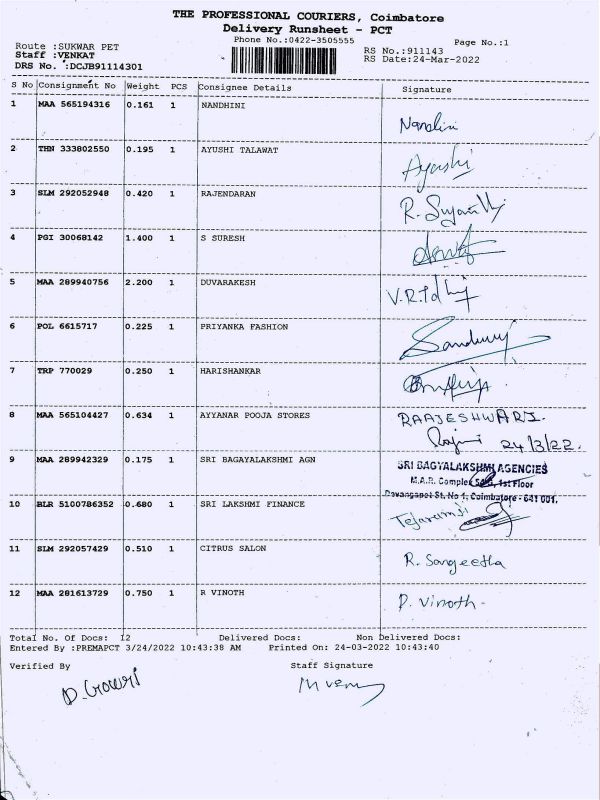 THE PROFESSIONAL COURIERS, Coimbatore
Delivery Runsheet - PCT
Phone No.:0422-3505555
Page No.:1
Route :SUKWAR PET
Staff :VENKAT
DRS No. :DCJB91114301
RS No.:911143
RS Date:24-Mar-2022
S No Consignment No Weight PCS Consignee Details Signature
1 MAA 565194316 0.161 1 NANDHINI Nandini
2 THN 333802550 0.195 1 AYUSHI TALAWAT Ayushi
3 SLM 292052948 0.420 1 RAJENDARAN R.
4 PGI 30068142 1.400 1 S SURESH
5 MAA 289940756 2.200 1 DUVARAKESH
6 POL 6615717 0.225 1 PRIYANKA FASHION
7 TRP 770029 0.250 1 HARISHANKAR
8 MAA 565104427 0.634 1 AYYANAR POOJA STORES RAAJESHWARI.
24/3/22.
9 MAA 289942329 0.175 1 SRI BAGAYALAKSHMI AGN SRI BAGYALAKSHMI AGENCIES
M.A.R. Complex 1st Floor
St. No 1, Coimbatore - 641 001.
10 BLR 5100786352 0.680 1 SRI LAKSHMI FINANCE Tejaramji
11 SLM 292057429 0.510 1 CITRUS SALON R. Sangeetha
12 MAA 281613729 0.750 1 R VINOTH P. Vinoth.
Total No. Of Docs: 12 Delivered Docs: Non Delivered Docs:
Entered By :PREMAPCT 3/24/2022 10:43:38 AM Printed On: 24-03-2022 10:43:40
Verified By Staff Signature
D. Gowri